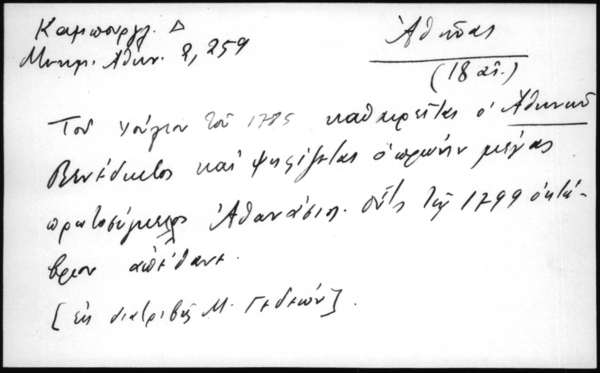 Καμπούρογλ. Δ
Μνημ. Αθην. 2, 259
Ἀθήνας
(18 αἰ.)
Τὸν Ἰούνιον τοῦ 1785 καθαιρεῖται ὁ Ἀθηνῶν
Βενέδικτος καὶ ψηφίζεται ὁ πρώην μέγας
πρωτοσύγκελος Ἀθανάσιος. οὗτος τῷ 1799 ὀκτώ-
βριον ἀπέθανε.
[ἐκ διατριβῆς Μ. Γεδεών].